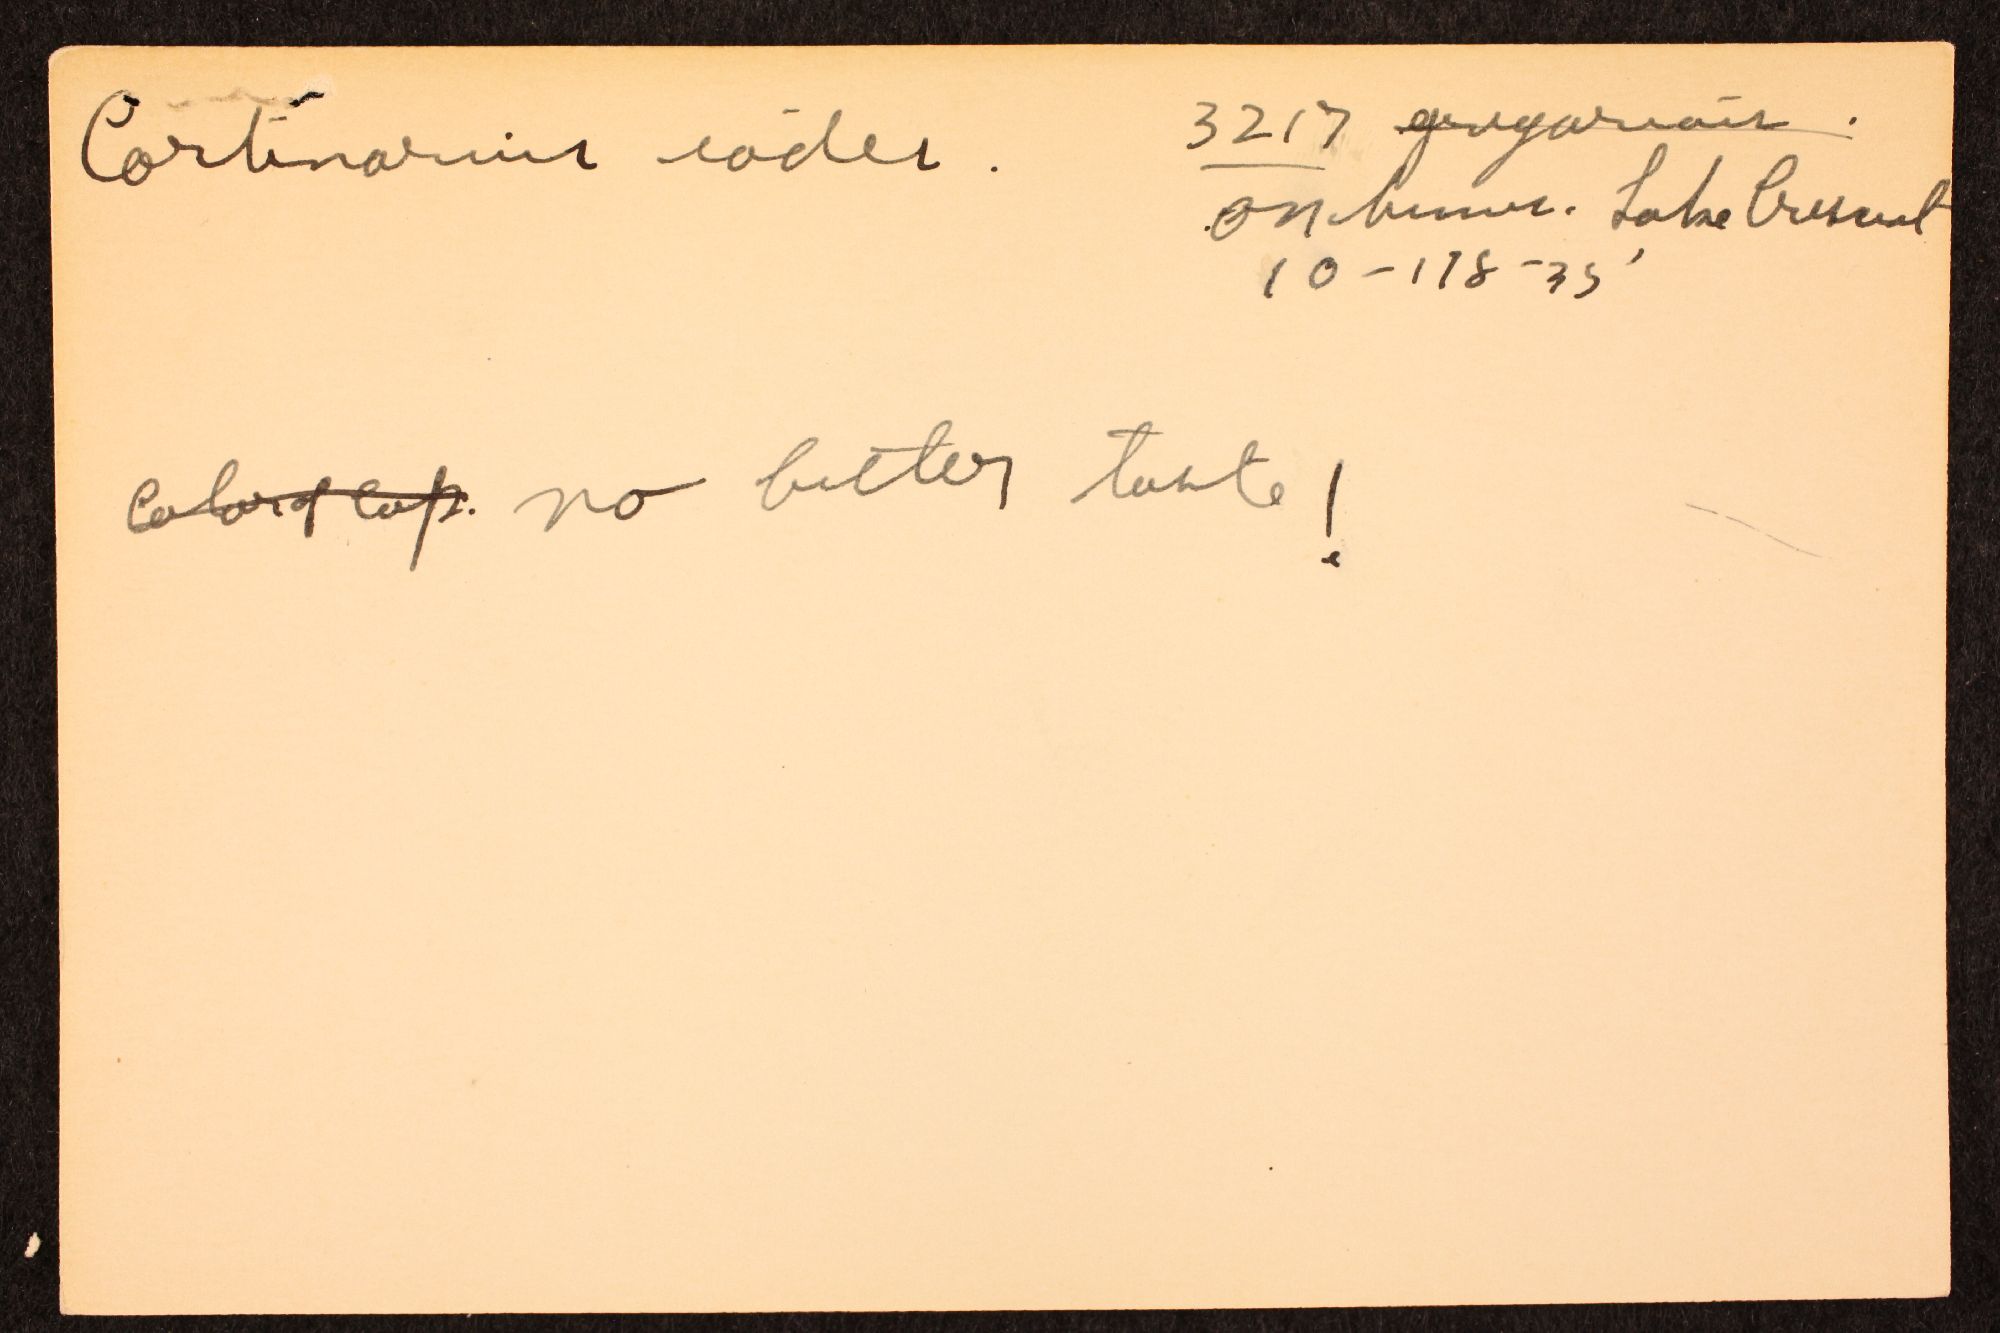 Cortinarius iodes.
3217 gregarious.
on humus. Lake Crescent
10-178-35'
Color of cap. no bitter taste!